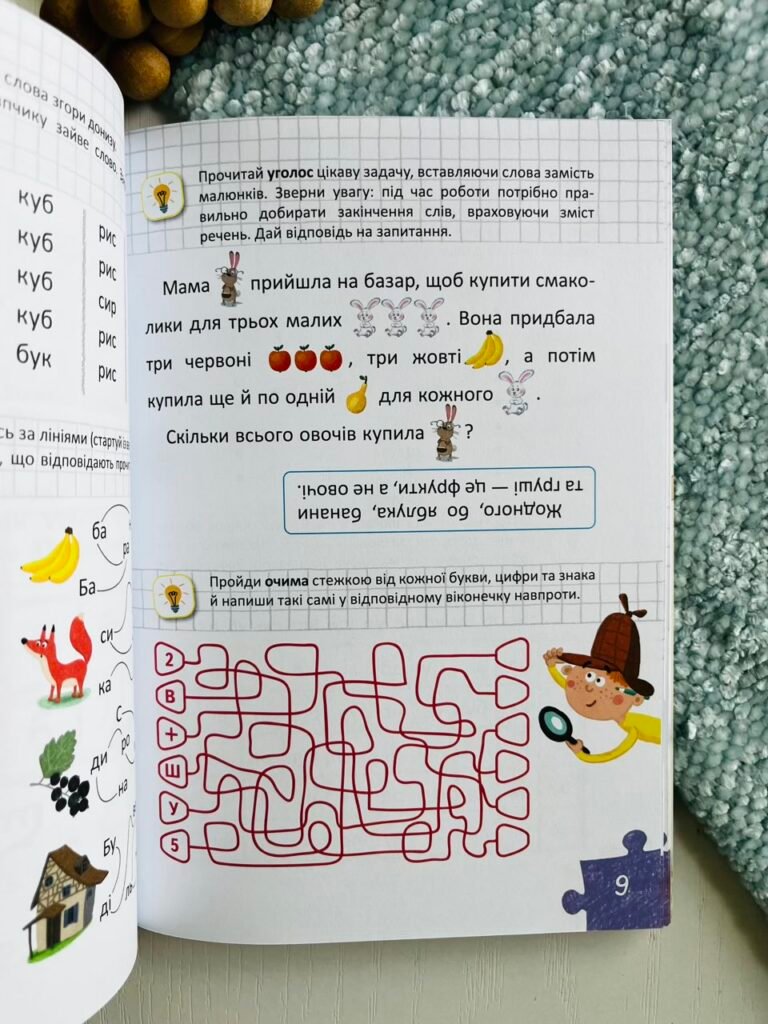 слова згори донизу.
зайве слово.
куб
куб
куб
куб
бук
рис
рис
сир
рис
рис
за лініями (стартуй із
, що відповідають
ба
ра
Ба
си
ка
С
ро
ди
на
Бу
ді
ль
Прочитай уголос цікаву задачу, вставляючи слова замість
малюнків. Зверни увагу: під час роботи потрібно пра-
вильно добирати закінчення слів, враховуючи зміст
речень. Дай відповідь на запитання.
Мама прийшла на базар, щоб купити смако-
лики для трьох малих . Вона придбала
три червоні , три жовті , а потім
купила ще й по одній для кожного .
Скільки всього овочів купила ?
Жодного, бо яблука, банани
та груші — це фрукти, а не овочі.
Пройди очима стежкою від кожної букви, цифри та знака
й напиши такі самі у відповідному віконечку навпроти.
2
В
+
Ш
У
5
9